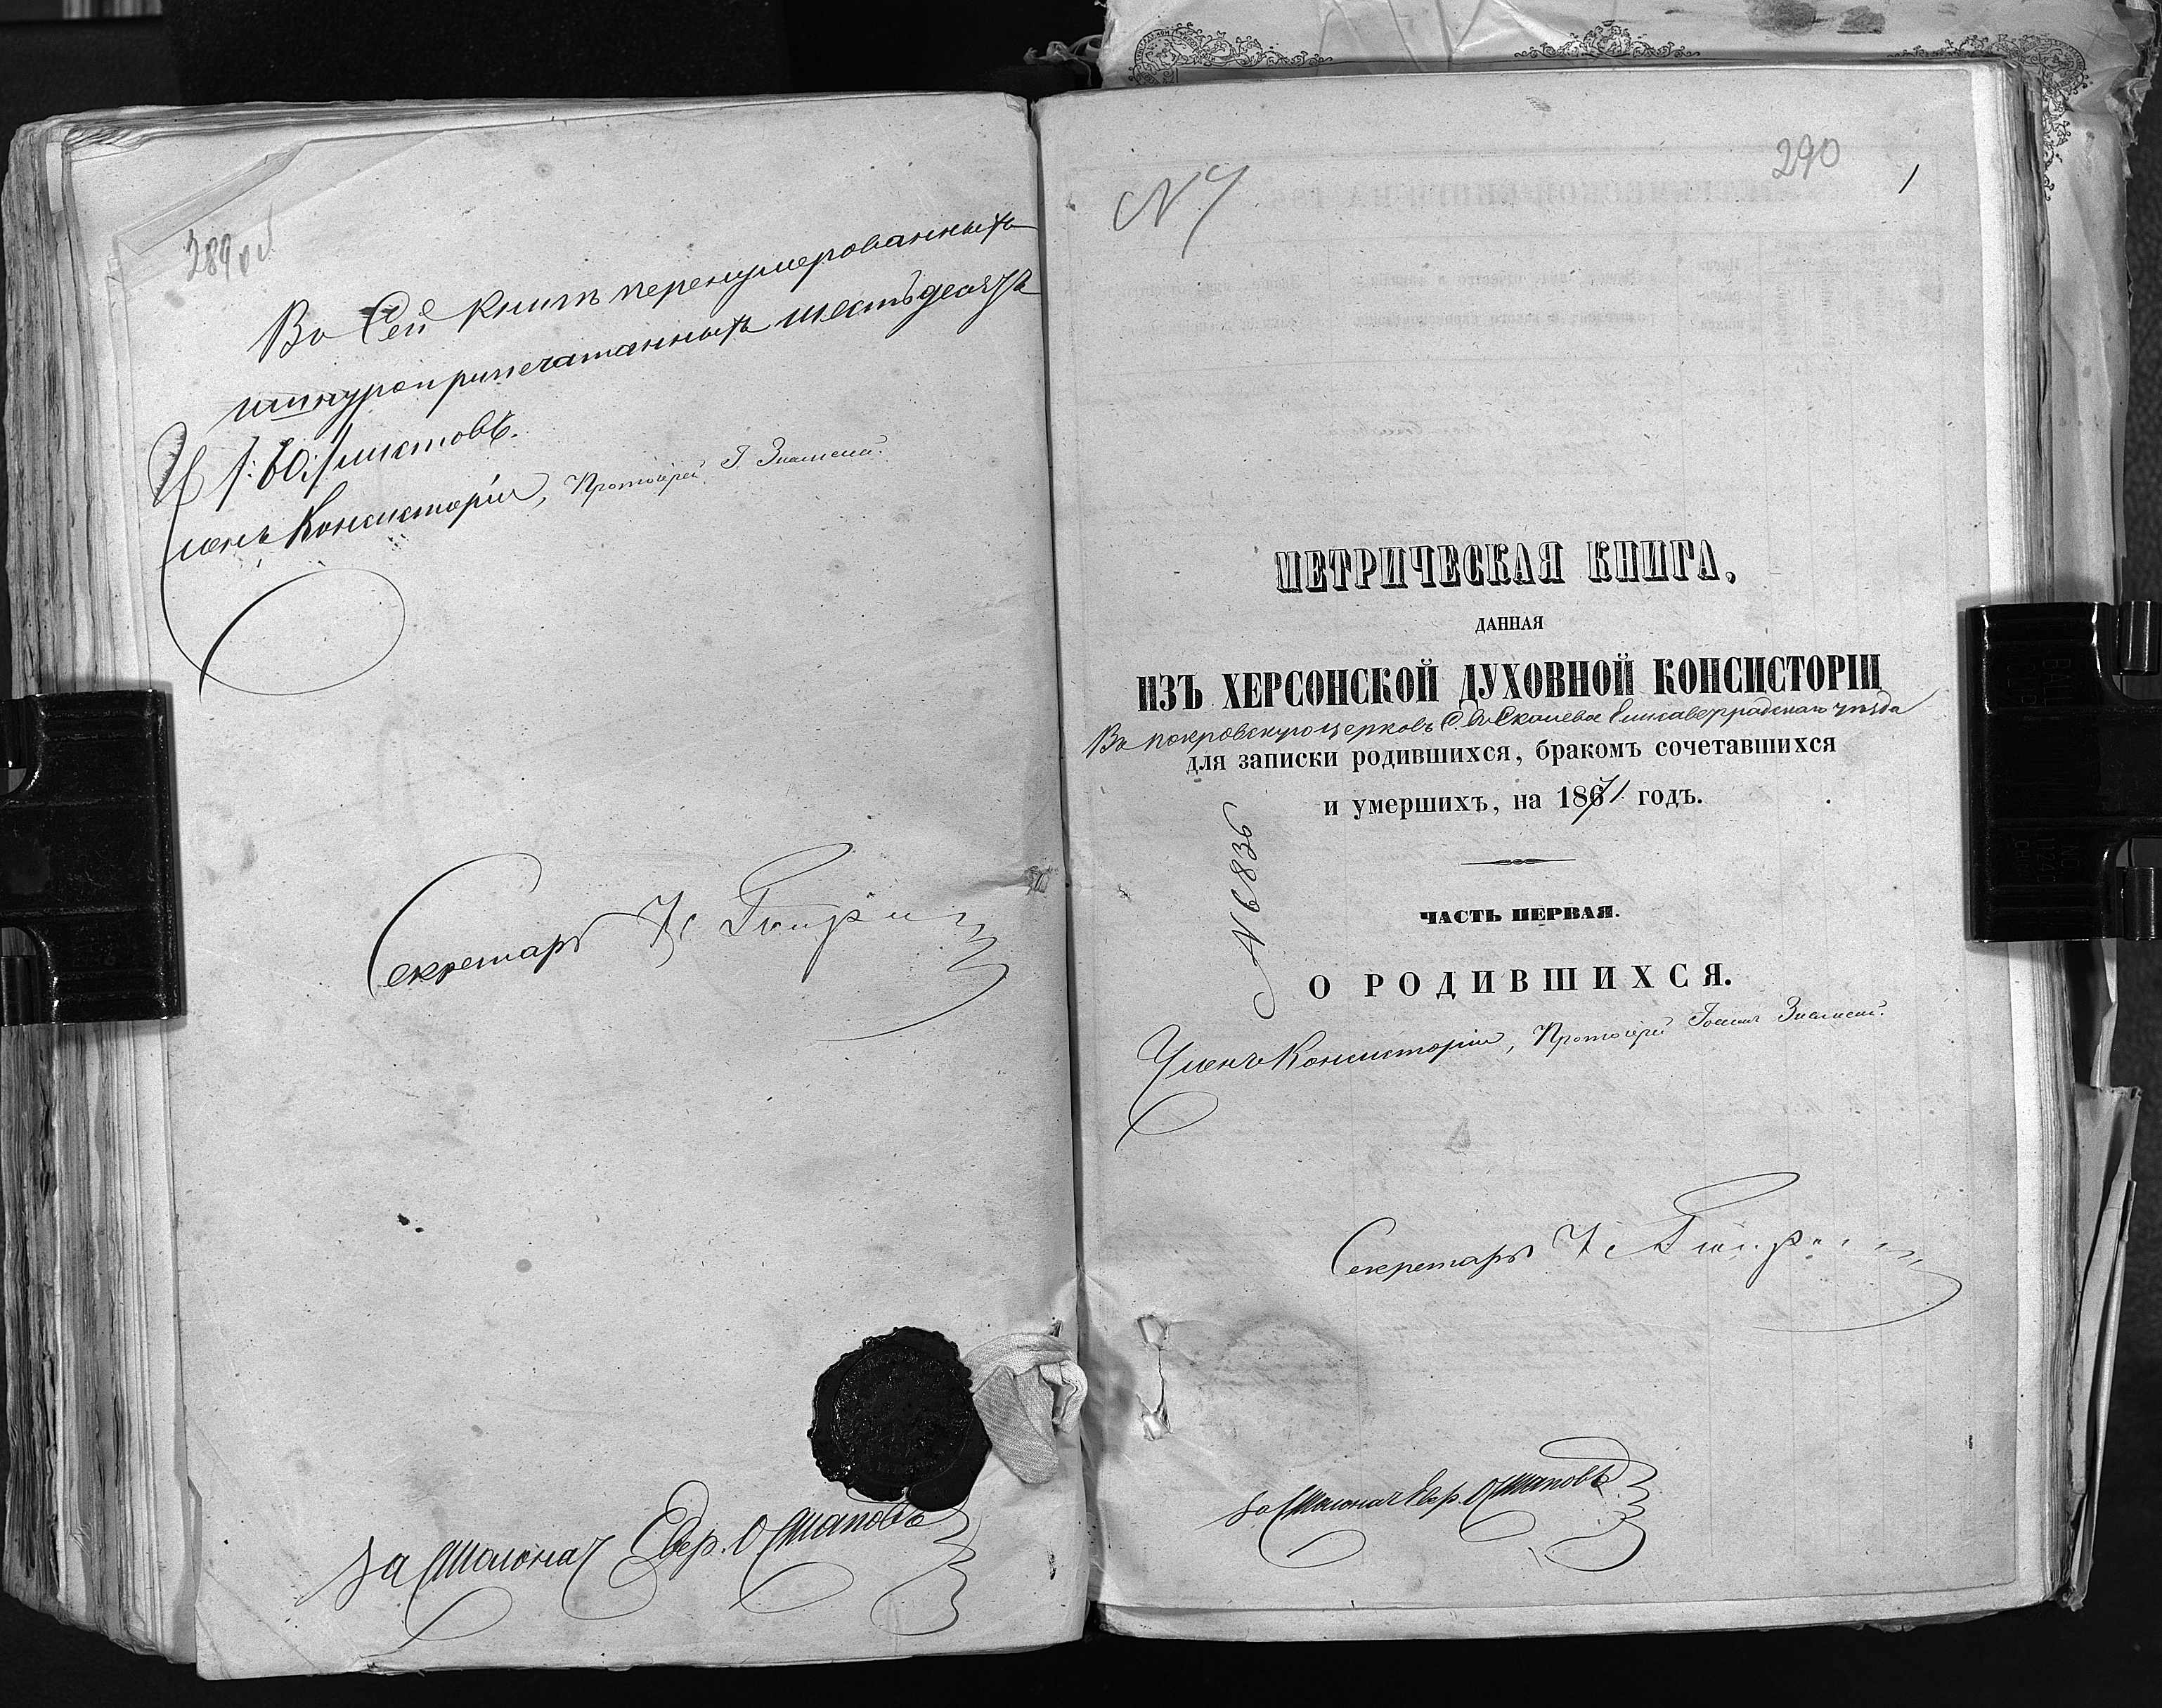 289 об
Въ Сей книгѣ перенумерованныхъ
шнуроприпечатанныхъ шестьдесятъ
/:60:/ листовъ.
Членъ Консисторіи, Протоіерей І. Знаменскій.
Секретарь
За Столонач Евгр. Остаповъ
290
1
N 7
МЕТРИЧЕСКАЯ КНИГА,
ДАННАЯ
ИЗЪ ХЕРСОНСКОЙ ДУХОВНОЙ КОНСИСТОРІИ
Въ покровскую церковь С. Елисаветградскаго уѣзда
для записки родившихся, бракомъ сочетавшихся
и умершихъ, на 1871 годъ.
N 6836
ЧАСТЬ ПЕРВАЯ.
О РОДИВШИХСЯ.
Членъ Консисторіи, Протоіерей Іоаннъ Знаменскій.
Секретарь
За Столонач Евгр. Остаповъ